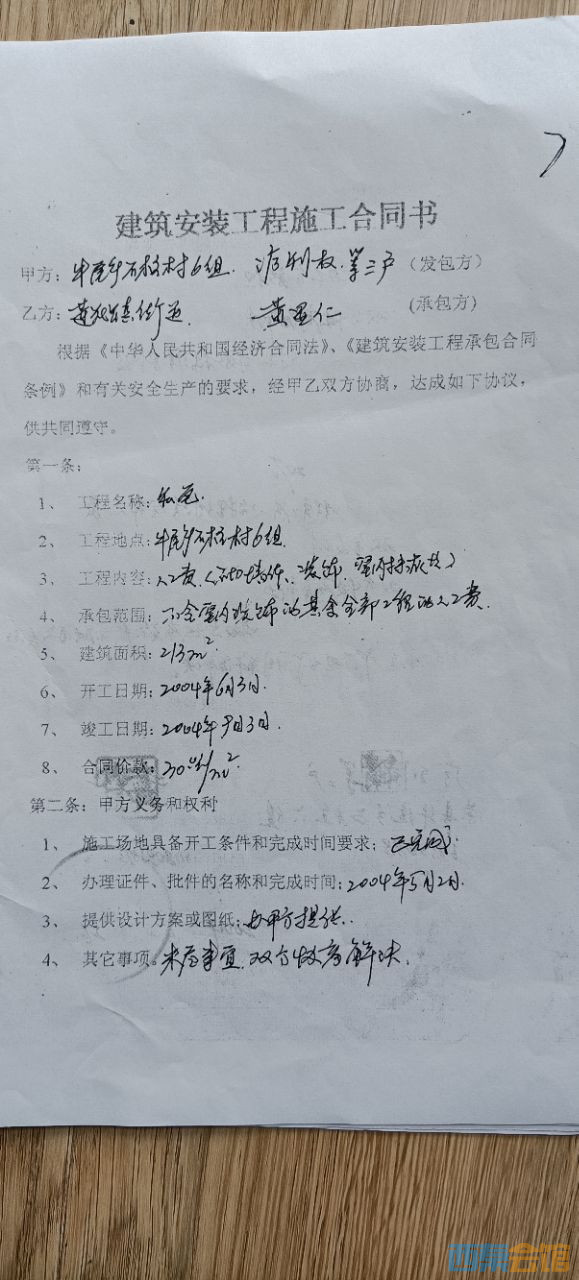 建筑安装工程施工合同书
甲方：牛尾乡石柱村6组. 利权.等三户（发包方）
乙方：镇街道. 黄 仁 (承包方)
根据《中华人民共和国经济合同法》、《建筑安装工程承包合同
条例》和有关安全生产的要求，经甲乙双方协商，达成如下协议，
供共同遵守。
第一条：
1、 工程名称：私宅.
2、 工程地点：牛尾乡石柱村6组.
3、 工程内容：人工费（ 墙体、装饰、室内
4、 承包范围：不含室内装饰的其余全部工程的人工费.
5、 建筑面积：213m².
6、 开工日期：2004年6月3日.
7、 竣工日期：2004年9月3日.
8、 合同价款：30元/m².
第二条：甲方义务和权利
1、 施工场地具备开工条件和完成时间要求；已完成.
2、 办理证件、批件的名称和完成时间：2004年5月2日.
3、 提供设计方案或图纸：由甲方提供.
4、 其它事项。未尽事宜.双方协商解决.
西泉会馆